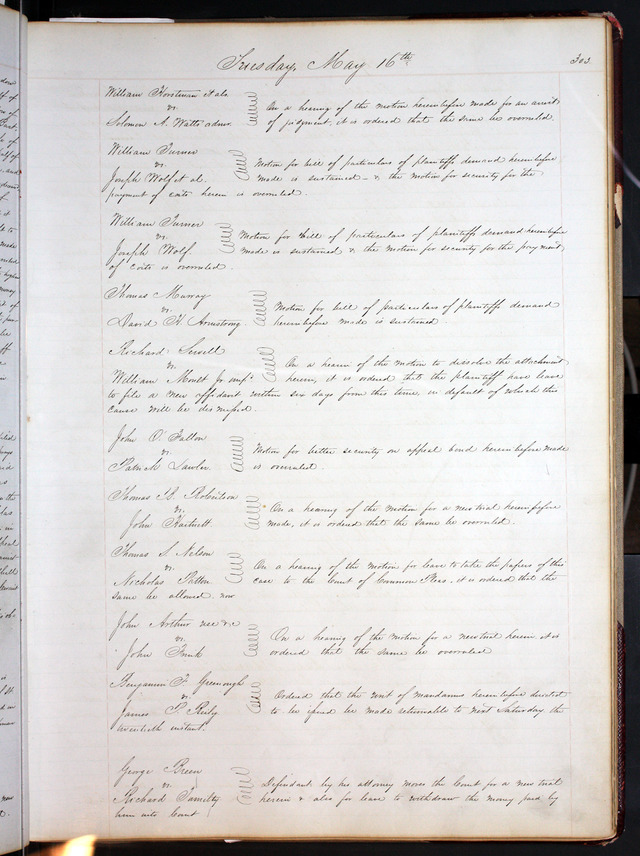 Tuesday, May 16th 303.
William Horstman & als
vs.
Solomon A. Watts admr.
On a hearing of the motion hereinbefore made for an arrest
of judgment, it is ordered that the same be overruled.
William Turner
vs.
Joseph Wolf et al.
Motion for bill of particulars of plaintiffs demand hereinbefore
made is sustained – & the motion for security for the
payment of costs herein is overruled.
William Turner
vs.
Joseph Wolf.
Motion for bill of particulars of plaintiffs demand hereinbefore
made is sustained & the motion for security for the payment
of costs is overruled.
Thomas Murray
vs.
David H. Armstrong
Motion for bill of particulars of plaintiffs demand
hereinbefore made is sustained
Richard Sewell
vs.
William Moult Jr
On a hearin of the motion to dissolve the attachment
herein, it is ordered that the plaintiff have leave
to file a new affidavit within six days from this time, in default of which this
cause will be dismissed.
John O'Fallon
vs.
Patrick Lawler.
Motion for better security on appeal bond hereinbefore made
is overruled.
Thomas B. Robertson
vs.
John Hartnett.
On a hearing of the motion for a new trial hereinbefore
made, it is ordered that the same be overruled.
Thomas S. Nelson
vs.
Nicholas Patton
On a hearing of the motion for leave to take the papers of this
case to the Court of Common Pleas, it is ordered that the
same be allowed. now
John Arthur use &c
vs.
John Funk
On a hearing of the motion for a new trial herein it is
ordered that the same be overruled
Benjamin F. Greenough
vs
James P. Reily
Ordered that the writ of mandamus hereinbefore directed
to be issued be made returnable to next Saturday the
twentieth instant.
George Breen
vs
Richard
Defendant by his attorney moves the Court for a new trial
herein & also for leave to withdraw the money paid by
him into Court